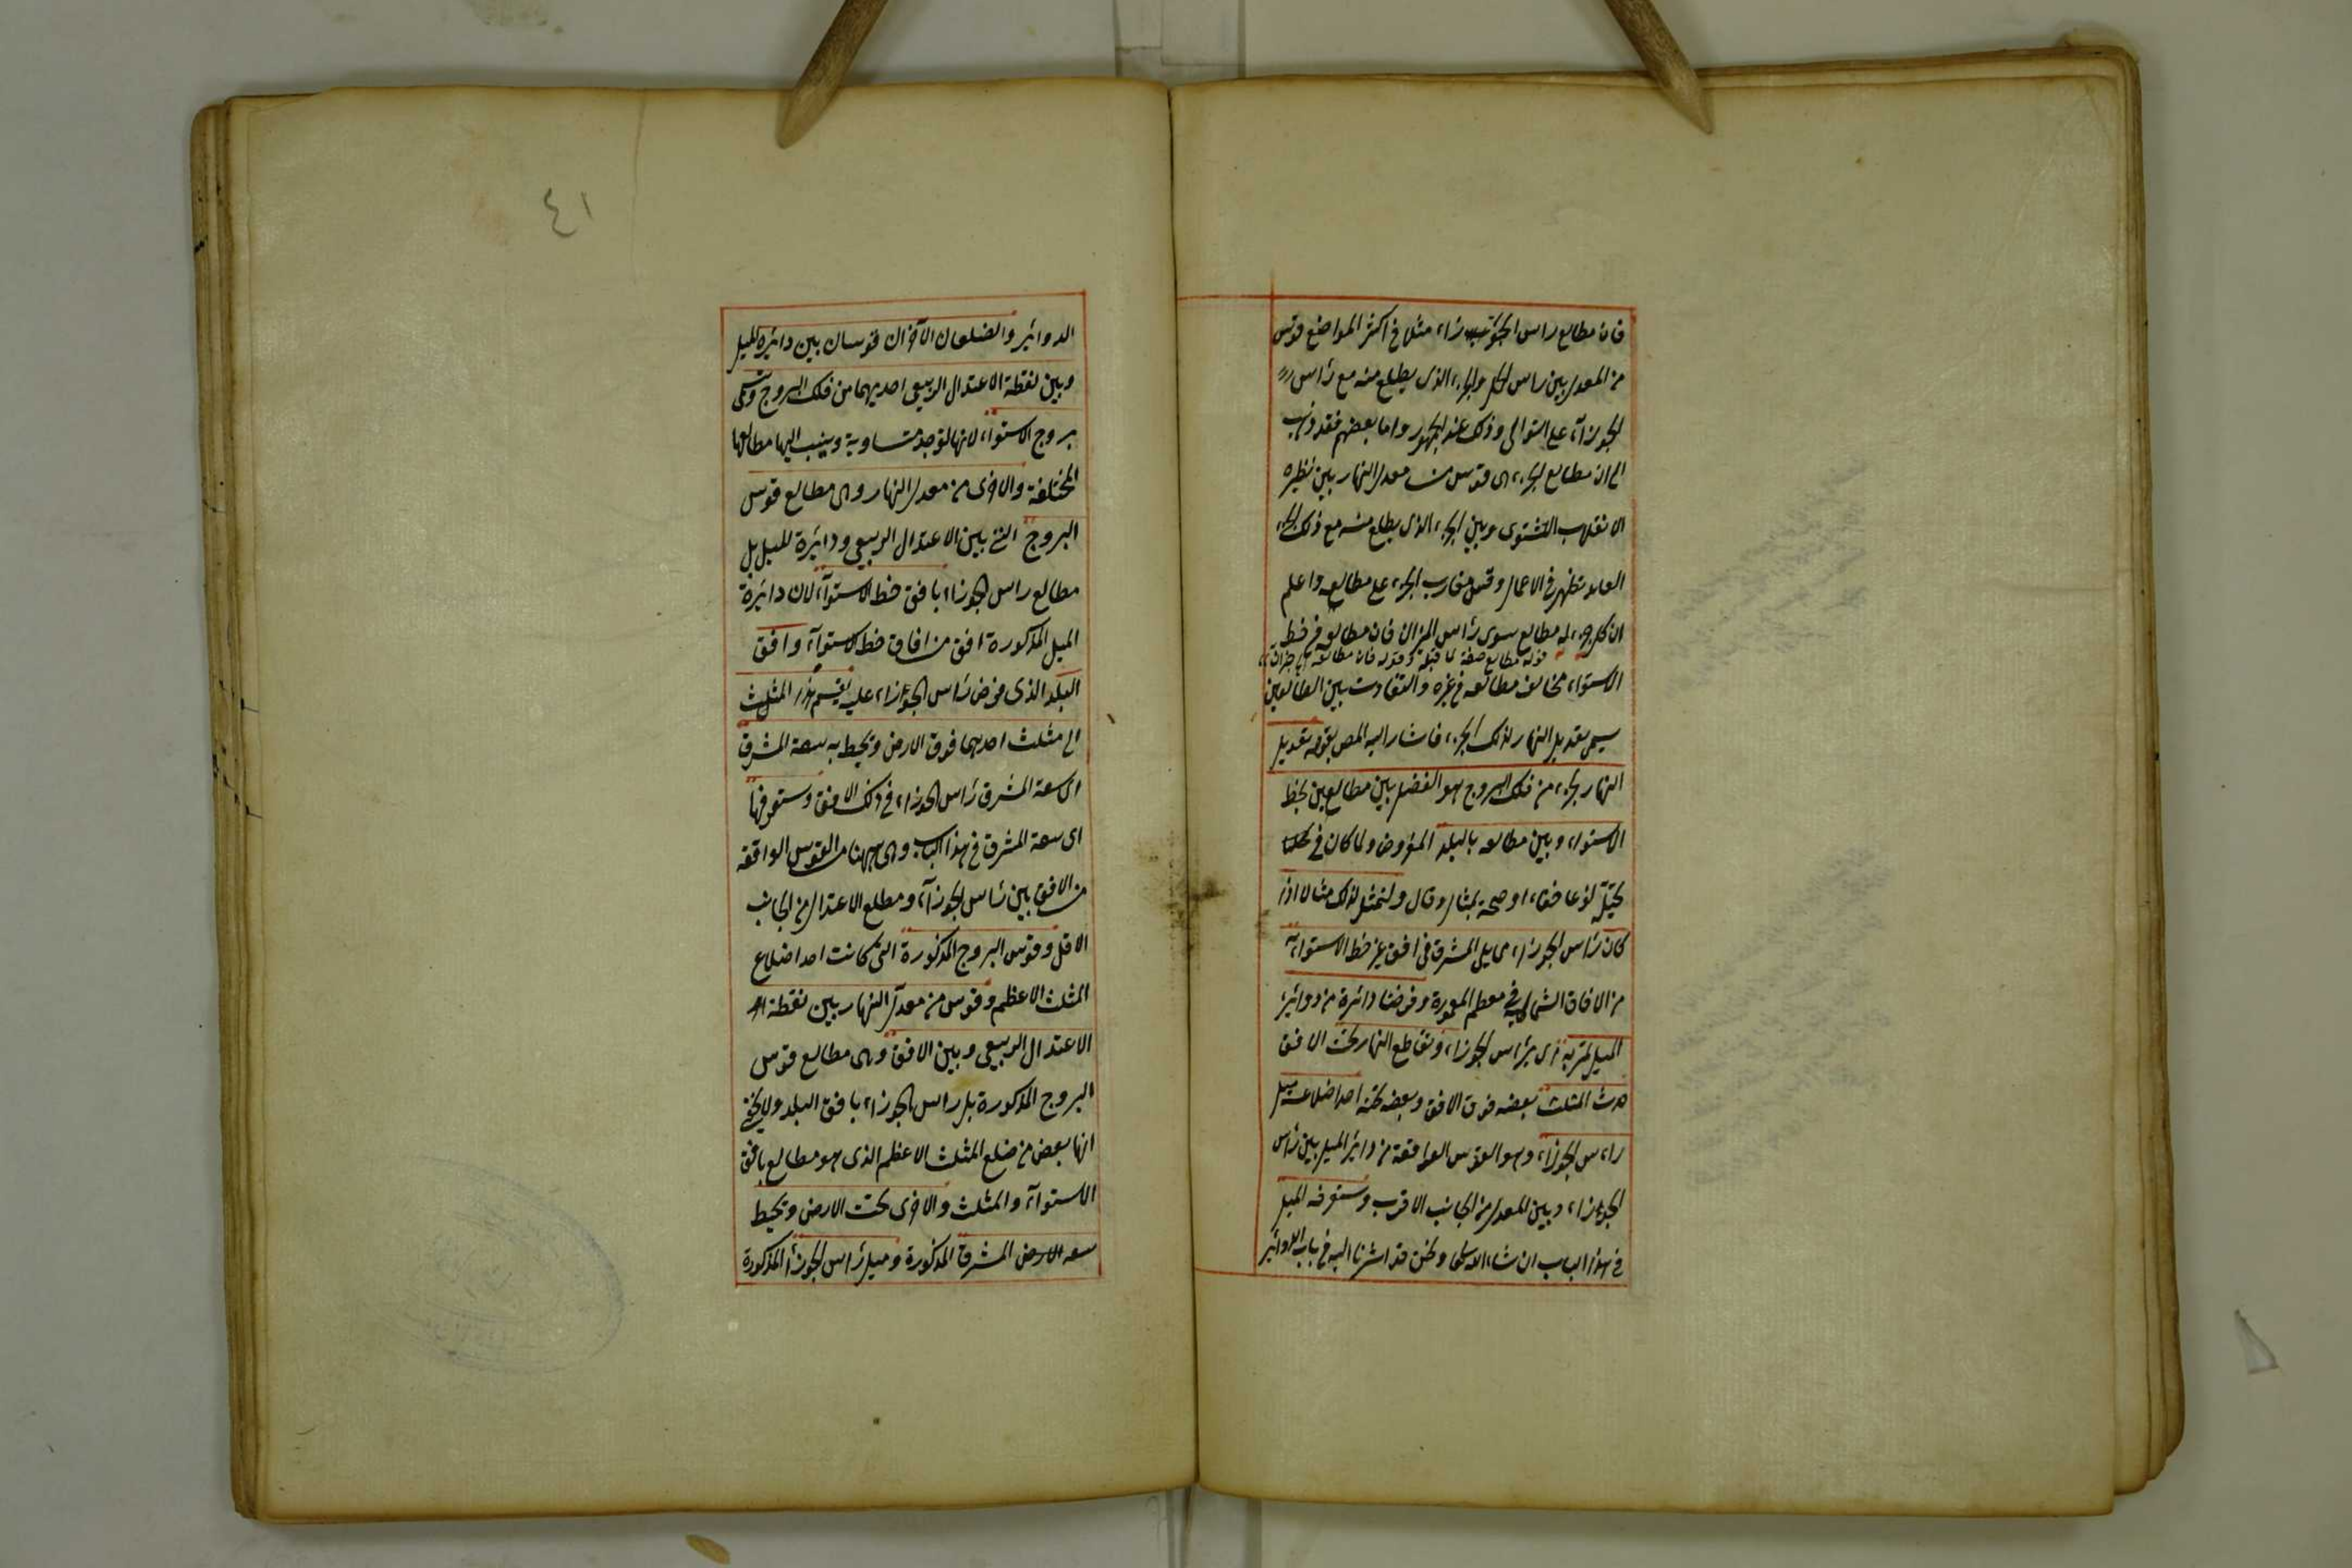 فان مطالع راس الجوزاء مثلا في اكثر المواضع قوس
من المعدل بين راس الحمل والجزء الذى يطلع منه مع راس
الجوزاء على التوالى وذلك عند الجمهور واما بعضهم فقد ذهب
الى ان مطالع الجزء هى قوس من معدل النهار بين نظيره
الانقلاب الشتوى وبين الجزء الذى يطلع منه مع ذلك الجزء
تظهر فى الاعمال وقس مغارب الجزء على مطالعه واعلم
ان كل جزء له مطالع سوى راس الميزان فان مطالعه فى خط
قوله مطالع صفة لما قبله وقوله فان مطالعه
الاستواء مخالف مطالعه فى غيره والتفاوت بين المطالعين
يسمى بتعديل النهار لذلك الجزء فاشار اليه المص بقوله تعديل
النهار بجزء من فلك البروج هو الفضل بين مطالعين بخط
الاستواء وبين مطالعه بالبلد المفروض ولما كان فى
تخيله نوعا خفاء اوضحه بمثال وقال ولنمثل لذلك مثالا اذا
كان راس الجوزاء مما يلى المشرق فى افق غير خط الاستواء
من الافاق الشمالية فى معظم المعمورة وفرضنا دائرة من دوائر
الميل تمر به اى براس الجوزاء وتقاطع النهار تحت الافق
حدث المثلث بعضه فوق الافق وبعضه تحته احد اضلاعه ميل
راس الجوزاء وهو القوس الواقعة من دائرة الميل بين راس
الجوزاء وبين المعدل من الجانب الاقرب وستعرفه الميل
فى هذا الباب ان شاء الله تعالى ولكن قد اشرنا اليه فى باب الدوائر
٤١
الدوائر والضلعان الآخران قوسان بين دائرة الميل
وبين نقطة الاعتدال الربيعى احديهما من فلك البروج وتسمى
بروج الاستواء لانها توجد متساوية وينسب اليها مطالعها
المختلفة والاخرى من معدل النهار وهى مطالع قوس
البروج التى بين الاعتدال الربيعى ودائرة الميل بل
مطالع راس الجوزاء بافق خط الاستواء لان دائرة
الميل المذكورة افق من افاق خط الاستواء وافق
البلد الذى فرض راس الجوزاء عليه يقسم هذا المثلث
الى مثلث احديهما فوق الارض وتحيط به سعة المشرق
اى سعة المشرق راس الجوزاء فى ذلك الافق وستعرفها
اى سعة المشرق فى هذا الباب وهى ههنا من القوس الواقعة
من الافق بين راس الجوزاء ومطلع الاعتدال من الجانب
الاقل وقوس البروج المذكورة التى كانت احد اضلاع
المثلث الاعظم وقوس من معدل النهار بين نقطة
الاعتدال الربيعى وبين الافق وهى مطالع قوس
البروج المذكورة بل راس الجوزاء بافق البلد ولا يخفى
انها بعض من ضلع المثلث الاعظم الذى هو مطالع بافق
الاستواء والمثلث والاخرى تحت الارض وتحيط
سعه الارض المشرق المذكورة وميل راس الجوزاء المذكورة